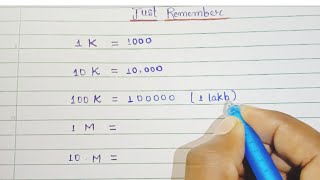 Just Remember
1 K = 1000
10 K = 10,000
100 K = 100000 (1 lakh)
1 M =
10 M =